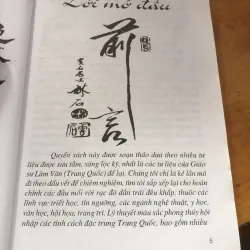 Lời mở đầu
前
言
黄石居士
林石
Quyển sách này được soạn thảo dựa theo nhiều tư
liệu được sưu tầm, sàng lọc kỹ, nhất là các tư liệu của Giáo
sư Lâm Văn (Trung Quốc) để lại. Chúng tôi chỉ là kẻ lần mò
đi theo dấu vết để chiêm nghiệm, tìm tòi sắp xếp lại cho hoàn
chỉnh các đầu mối rời rạc đó dân trải đều khắp, thuộc các
lĩnh vực triết học, tín ngưỡng, các ngành nghệ thuật, y học,
văn học, hội họa, trang trí. Lý thuyết màu sắc phong thủy hội
nhập các tinh cách đặc trưng Trung Quốc, bao gồm nhiều
5